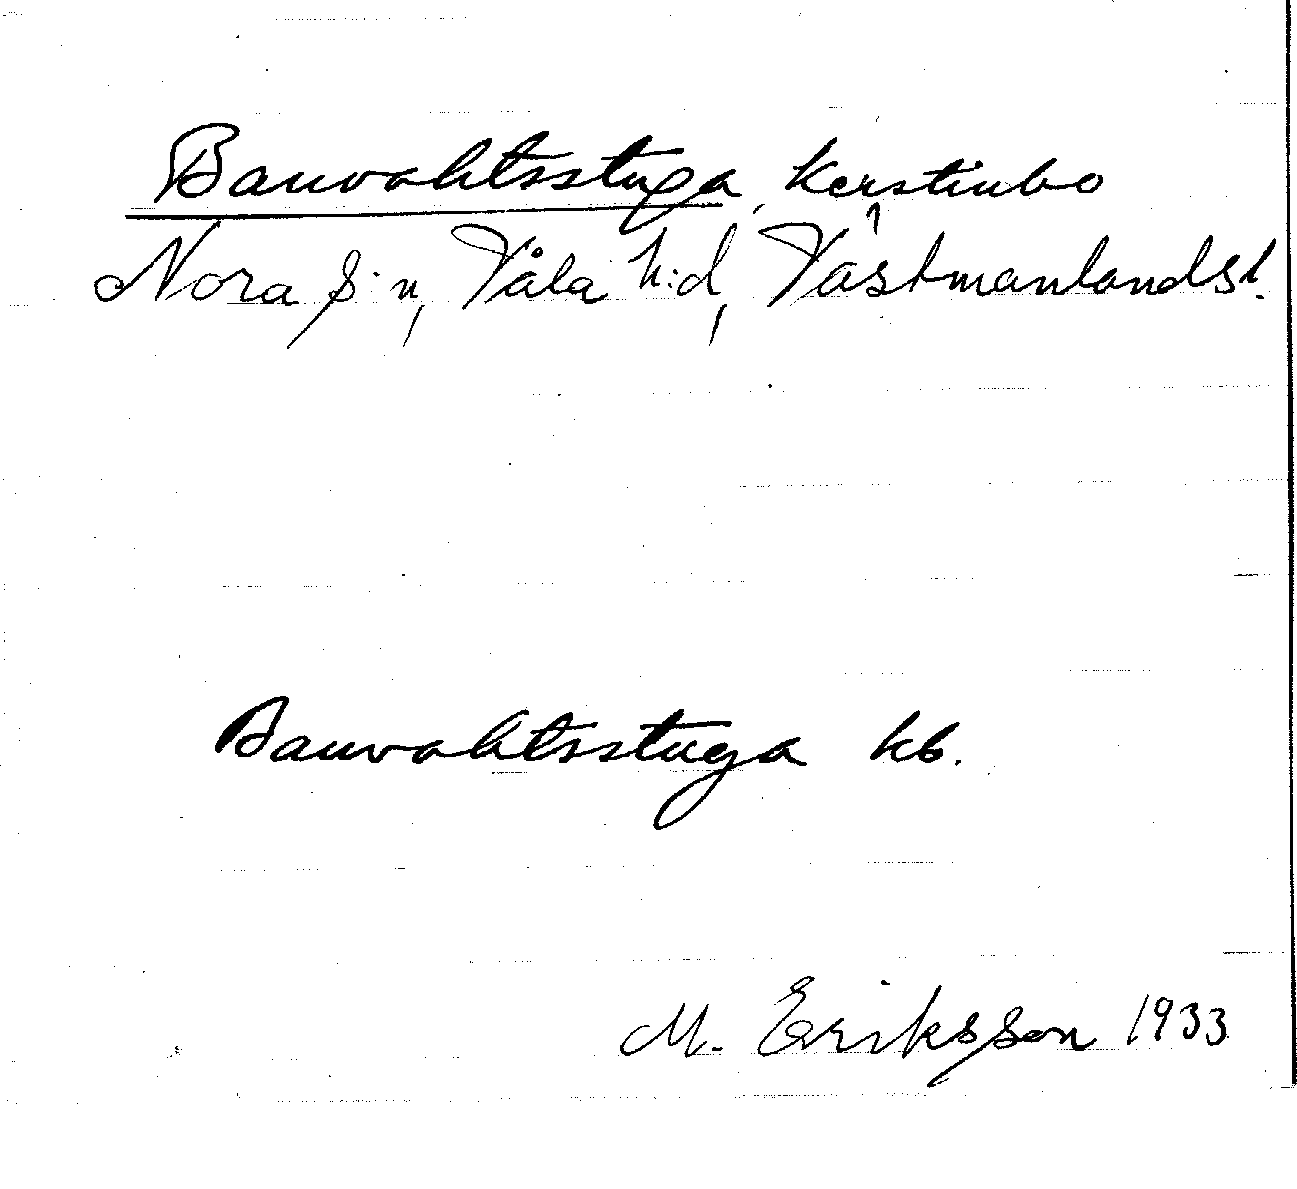 Banvaktsstuga, Kerstinbo
Nora s:n, Våla h:d, Västmanlandsl.
Banvaktsstuga kb.
M. Eriksson 1933